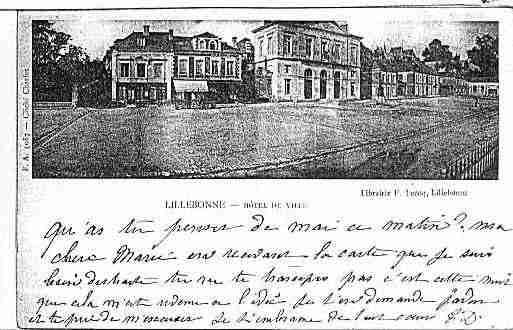 LILLEBONNE — HÔTEL DE VILLE
Librairie F. Lillebonne
qu'as tu penser de moi ce matin? ma
chère Marie en recevant la carte que je suis
tu ne te pas c'est cette nuit
que cela m'est a l'idée je t'en demande pardon
et te prie de m'excuser je t'embrasse de tout cœur